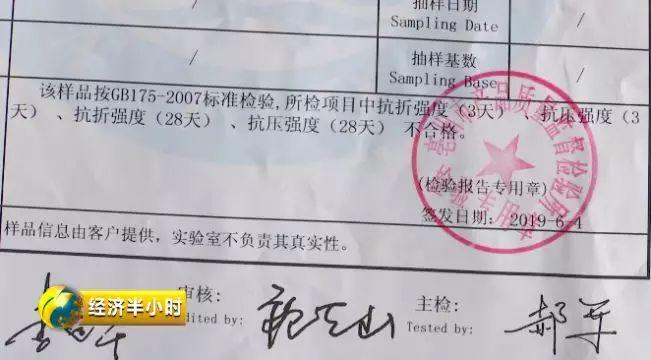 抽样日期
Sampling Date
/
/
抽样基数
Sampling Base
/
该样品按GB175-2007标准检验,所检项目中抗折强度（3天）、抗压强度（3
天）、抗折强度（28天）、抗压强度（28天）不合格。
产品质量监督检验
(检验报告专用章)
签发日期: 2019-6-4
样品信息由客户提供，实验室不负责其真实性。
经济半小时
审核:
dited by:
主检:
Tested by:
郝军